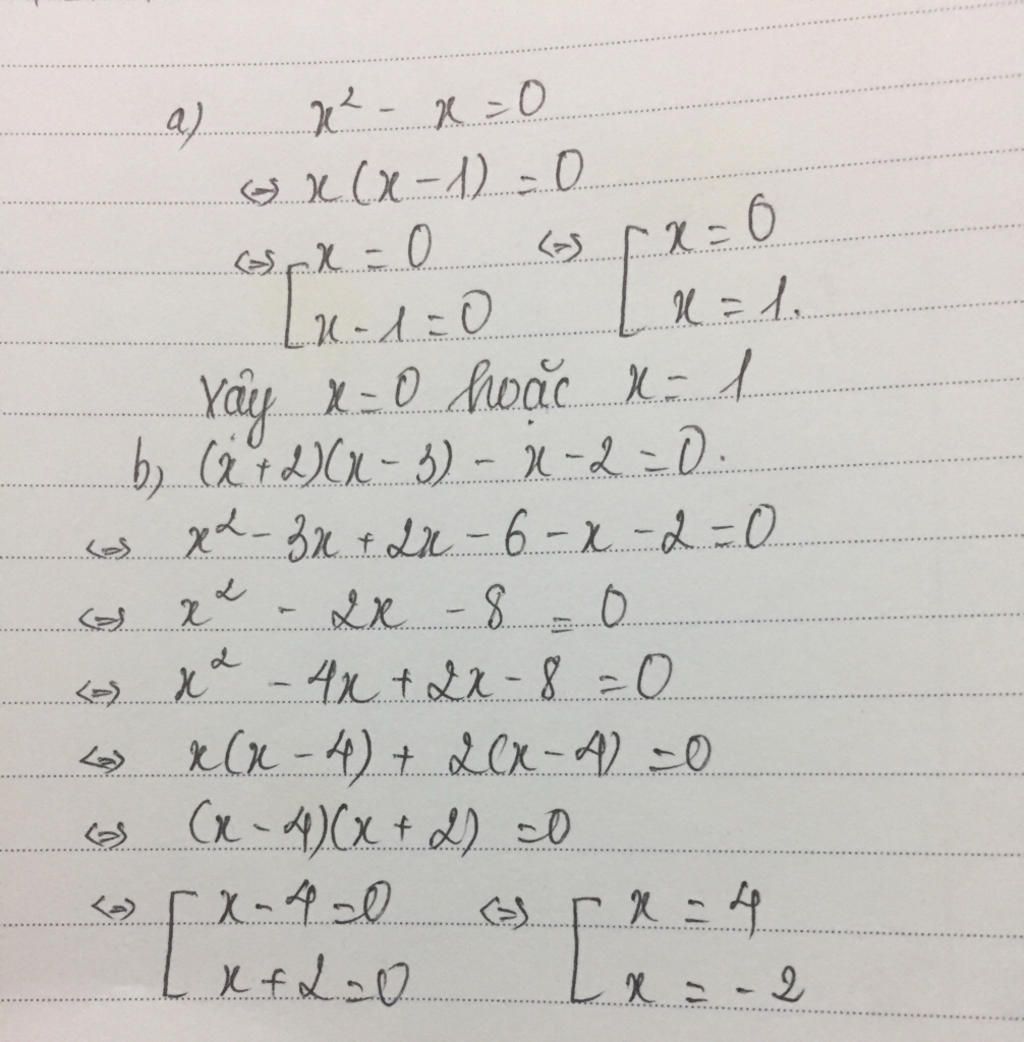 a) x² - x = 0
⇔ x(x - 1) = 0
⇔ [ x = 0 ⇔ [ x = 0
x - 1 = 0 x = 1.
Vậy x = 0 hoặc x = 1
b) (x + 2)(x - 3) - x - 2 = 0.
⇔ x² - 3x + 2x - 6 - x - 2 = 0
⇔ x² - 2x - 8 = 0
⇔ x² - 4x + 2x - 8 = 0
⇔ x(x - 4) + 2(x - 4) = 0
⇔ (x - 4)(x + 2) = 0
⇔ [ x - 4 = 0 ⇔ [ x = 4
x + 2 = 0 x = - 2